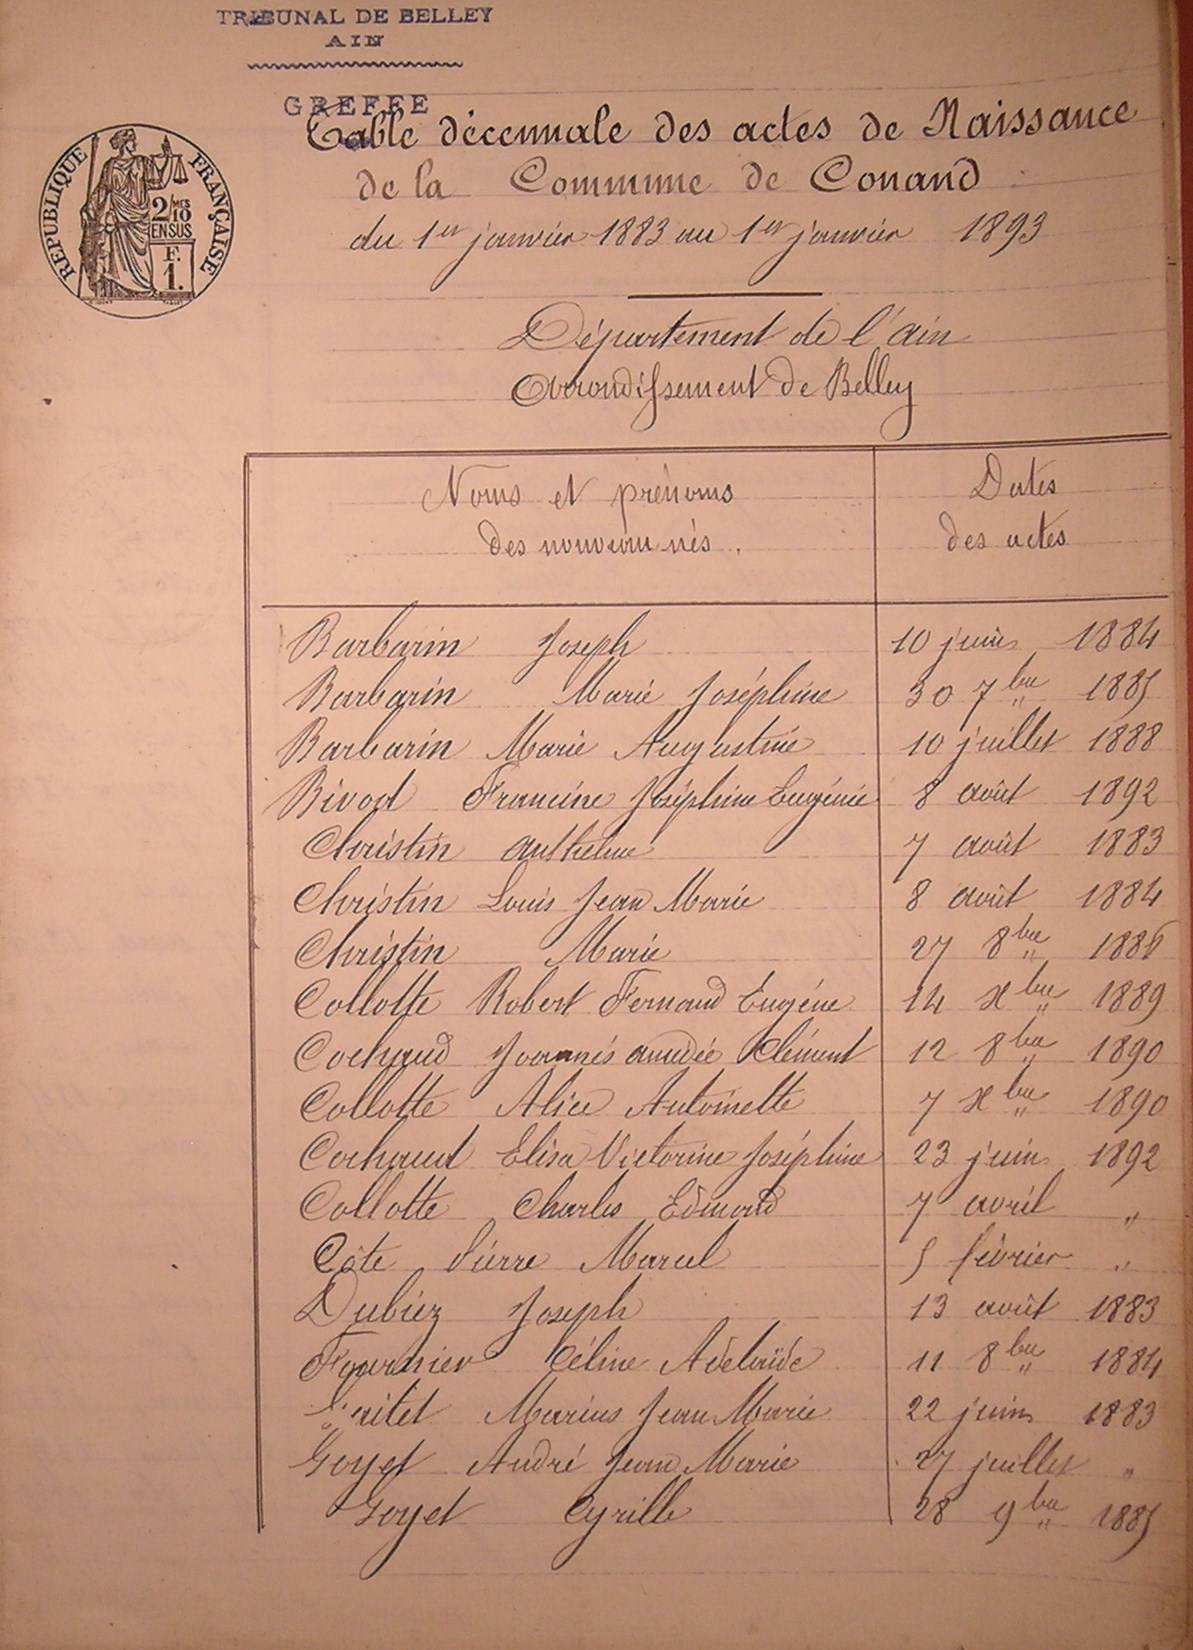 TRIBUNAL DE BELLEY
AIN
GREFFE
RÉPUBLIQUE FRANÇAISE
2/10 MES
EN SUS
F.
1.
Table décennale des actes de Naissance
de la Commune de Conand
du 1er janvier 1883 au 1er janvier 1893
Département de l'ain
Arrondissement de Belley
Noms et prénoms
des nouveau nés.
Dates
des actes
Barbarin Joseph 10 juin 1884
Barbarin Marie Joséphine 30 7bre 1885
Barbarin Marie Augustine 10 juillet 1888
Bivod Francine Joséphine Eugénie 8 août 1892
Christin anthelme 7 août 1883
Christin Louis Jean Marie 8 août 1884
Christin Marie 27 8bre 1886
Collotte Robert Fernand Eugéne 14 xbre 1889
Cochaud Joannés amédée Clément 12 8bre 1890
Collotte Alice Antoinette 7 xbre 1890
Cochaud Elisa Victorine Joséphine 23 juin 1892
Collotte Charles Edmond 7 avril "
Côte Pierre Marcel 5 février "
Dubiez Joseph 13 août 1883
Fournier Céline Adelaïde 11 8bre 1884
Marius Jean Marie 22 juin 1883
Goyet André Jean Marie 27 juillet "
Goyet Cyrille 28 9bre 1885